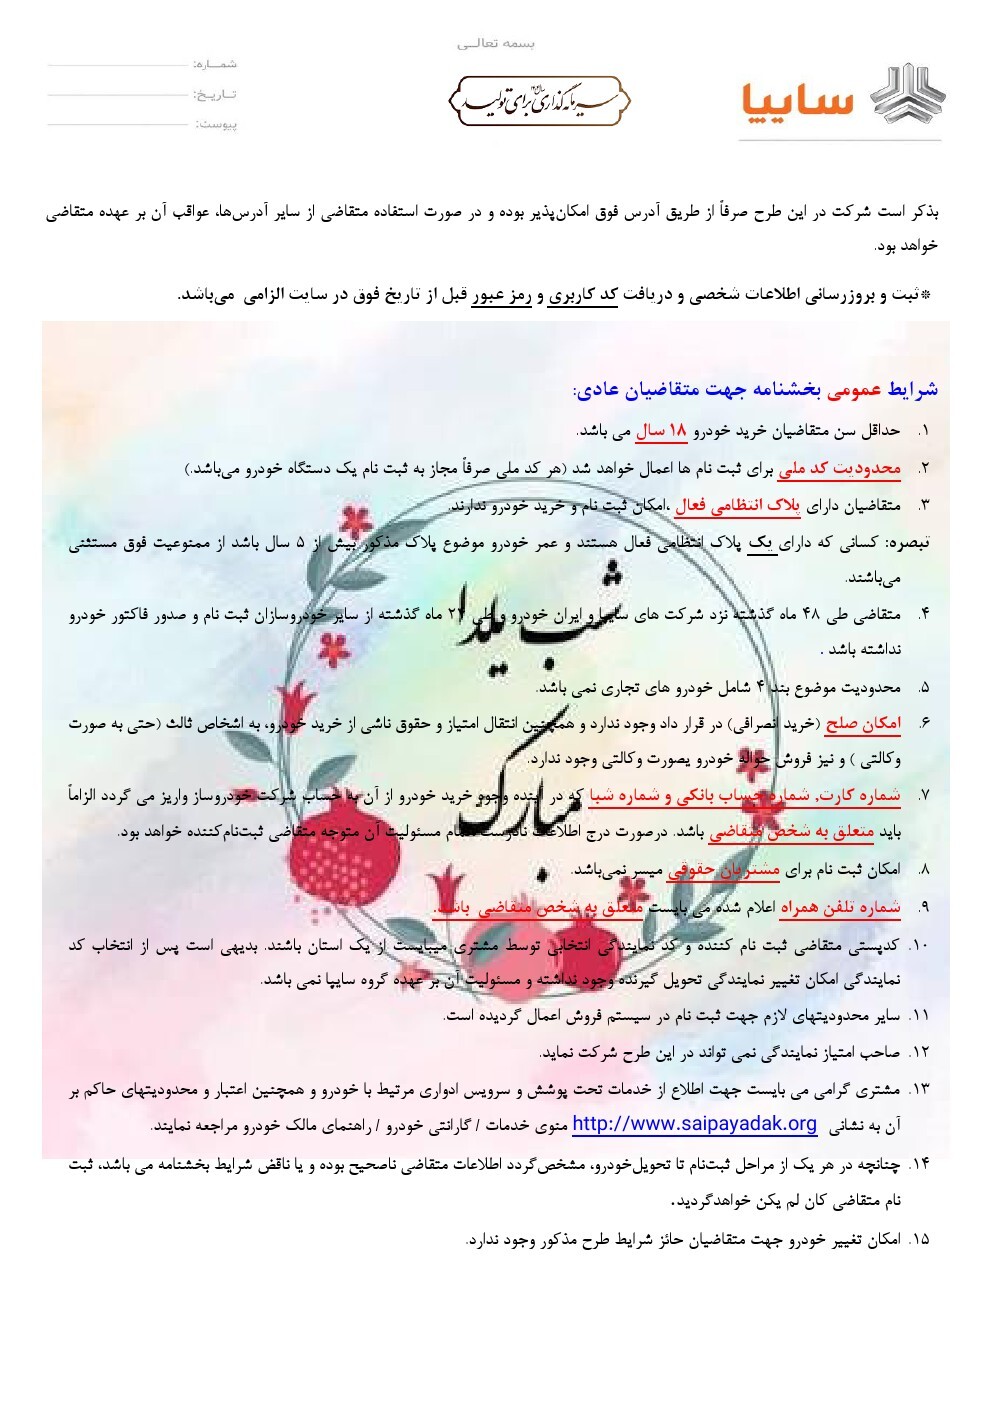 بسمه تعالـی
شمـــاره:
تـاریـخ:
پیوست:
سرمایه گذاری برای تولید
سایپا
بذکر است شرکت در این طرح صرفاً از طریق آدرس فوق امکان‌پذیر بوده و در صورت استفاده متقاضی از سایر آدرس‌ها، عواقب آن بر عهده متقاضی
خواهد بود.
*ثبت و بروزرسانی اطلاعات شخصی و دریافت کد کاربری و رمز عبور قبل از تاریخ فوق در سایت الزامی می‌باشد.
شرایط عمومی بخشنامه جهت متقاضیان عادی:
۱. حداقل سن متقاضیان خرید خودرو ۱۸ سال می باشد.
۲. محدودیت کد ملی برای ثبت نام ها اعمال خواهد شد (هر کد ملی صرفاً مجاز به ثبت نام یک دستگاه خودرو می‌باشد.)
۳. متقاضیان دارای پلاک انتظامی فعال ،امکان ثبت نام و خرید خودرو ندارند.
تبصره: کسانی که دارای یک پلاک انتظامی فعال هستند و عمر خودرو موضوع پلاک مذکور بیش از ۵ سال باشد از ممنوعیت فوق مستثنی
می‌باشند.
شب یلدا
۴. متقاضی طی ۴۸ ماه گذشته نزد شرکت های سایپا و ایران خودرو و طی ۲۴ ماه گذشته از سایر خودروسازان ثبت نام و صدور فاکتور خودرو
نداشته باشد .
۵. محدودیت موضوع بند ۴ شامل خودرو های تجاری نمی باشد.
۶. امکان صلح (خرید انصرافی) در قرار داد وجود ندارد و همچنین انتقال امتیاز و حقوق ناشی از خرید خودرو، به اشخاص ثالث (حتی به صورت
وکالتی ) و نیز فروش حواله خودرو یصورت وکالتی وجود ندارد.
مبارک
۷. شماره کارت، شماره حساب بانکی و شماره شبا که در آینده وجوه خرید خودرو از آن به حساب شرکت خودروساز واریز می گردد الزاماً
باید متعلق به شخص متقاضی باشد. درصورت درج اطلاعات نادرست تمام مسئولیت آن متوجه متقاضی ثبت‌نام‌کننده خواهد بود.
۸. امکان ثبت نام برای مشتریان حقوقی میسر نمی‌باشد.
۹. شماره تلفن همراه اعلام شده می بایست متعلق به شخص متقاضی باشد.
۱۰. کدپستی متقاضی ثبت نام کننده و کد نمایندگی انتخابی توسط مشتری میبایست از یک استان باشند. بدیهی است پس از انتخاب کد
نمایندگی امکان تغییر نمایندگی تحویل گیرنده وجود نداشته و مسئولیت آن بر عهده گروه سایپا نمی باشد.
۱۱. سایر محدودیتهای لازم جهت ثبت نام در سیستم فروش اعمال گردیده است.
۱۲. صاحب امتیاز نمایندگی نمی تواند در این طرح شرکت نماید.
۱۳. مشتری گرامی می بایست جهت اطلاع از خدمات تحت پوشش و سرویس ادواری مرتبط با خودرو و همچنین اعتبار و محدودیتهای حاکم بر
آن به نشانی http://www.saipayadak.org منوی خدمات / گارانتی خودرو / راهنمای مالک خودرو مراجعه نمایند.
۱۴. چنانچه در هر یک از مراحل ثبت‌نام تا تحویل‌خودرو، مشخص‌گردد اطلاعات متقاضی ناصحیح بوده و یا ناقض شرایط بخشنامه می باشد، ثبت
نام متقاضی کان لم یکن خواهدگردید.
۱۵. امکان تغییر خودرو جهت متقاضیان حائز شرایط طرح مذکور وجود ندارد.